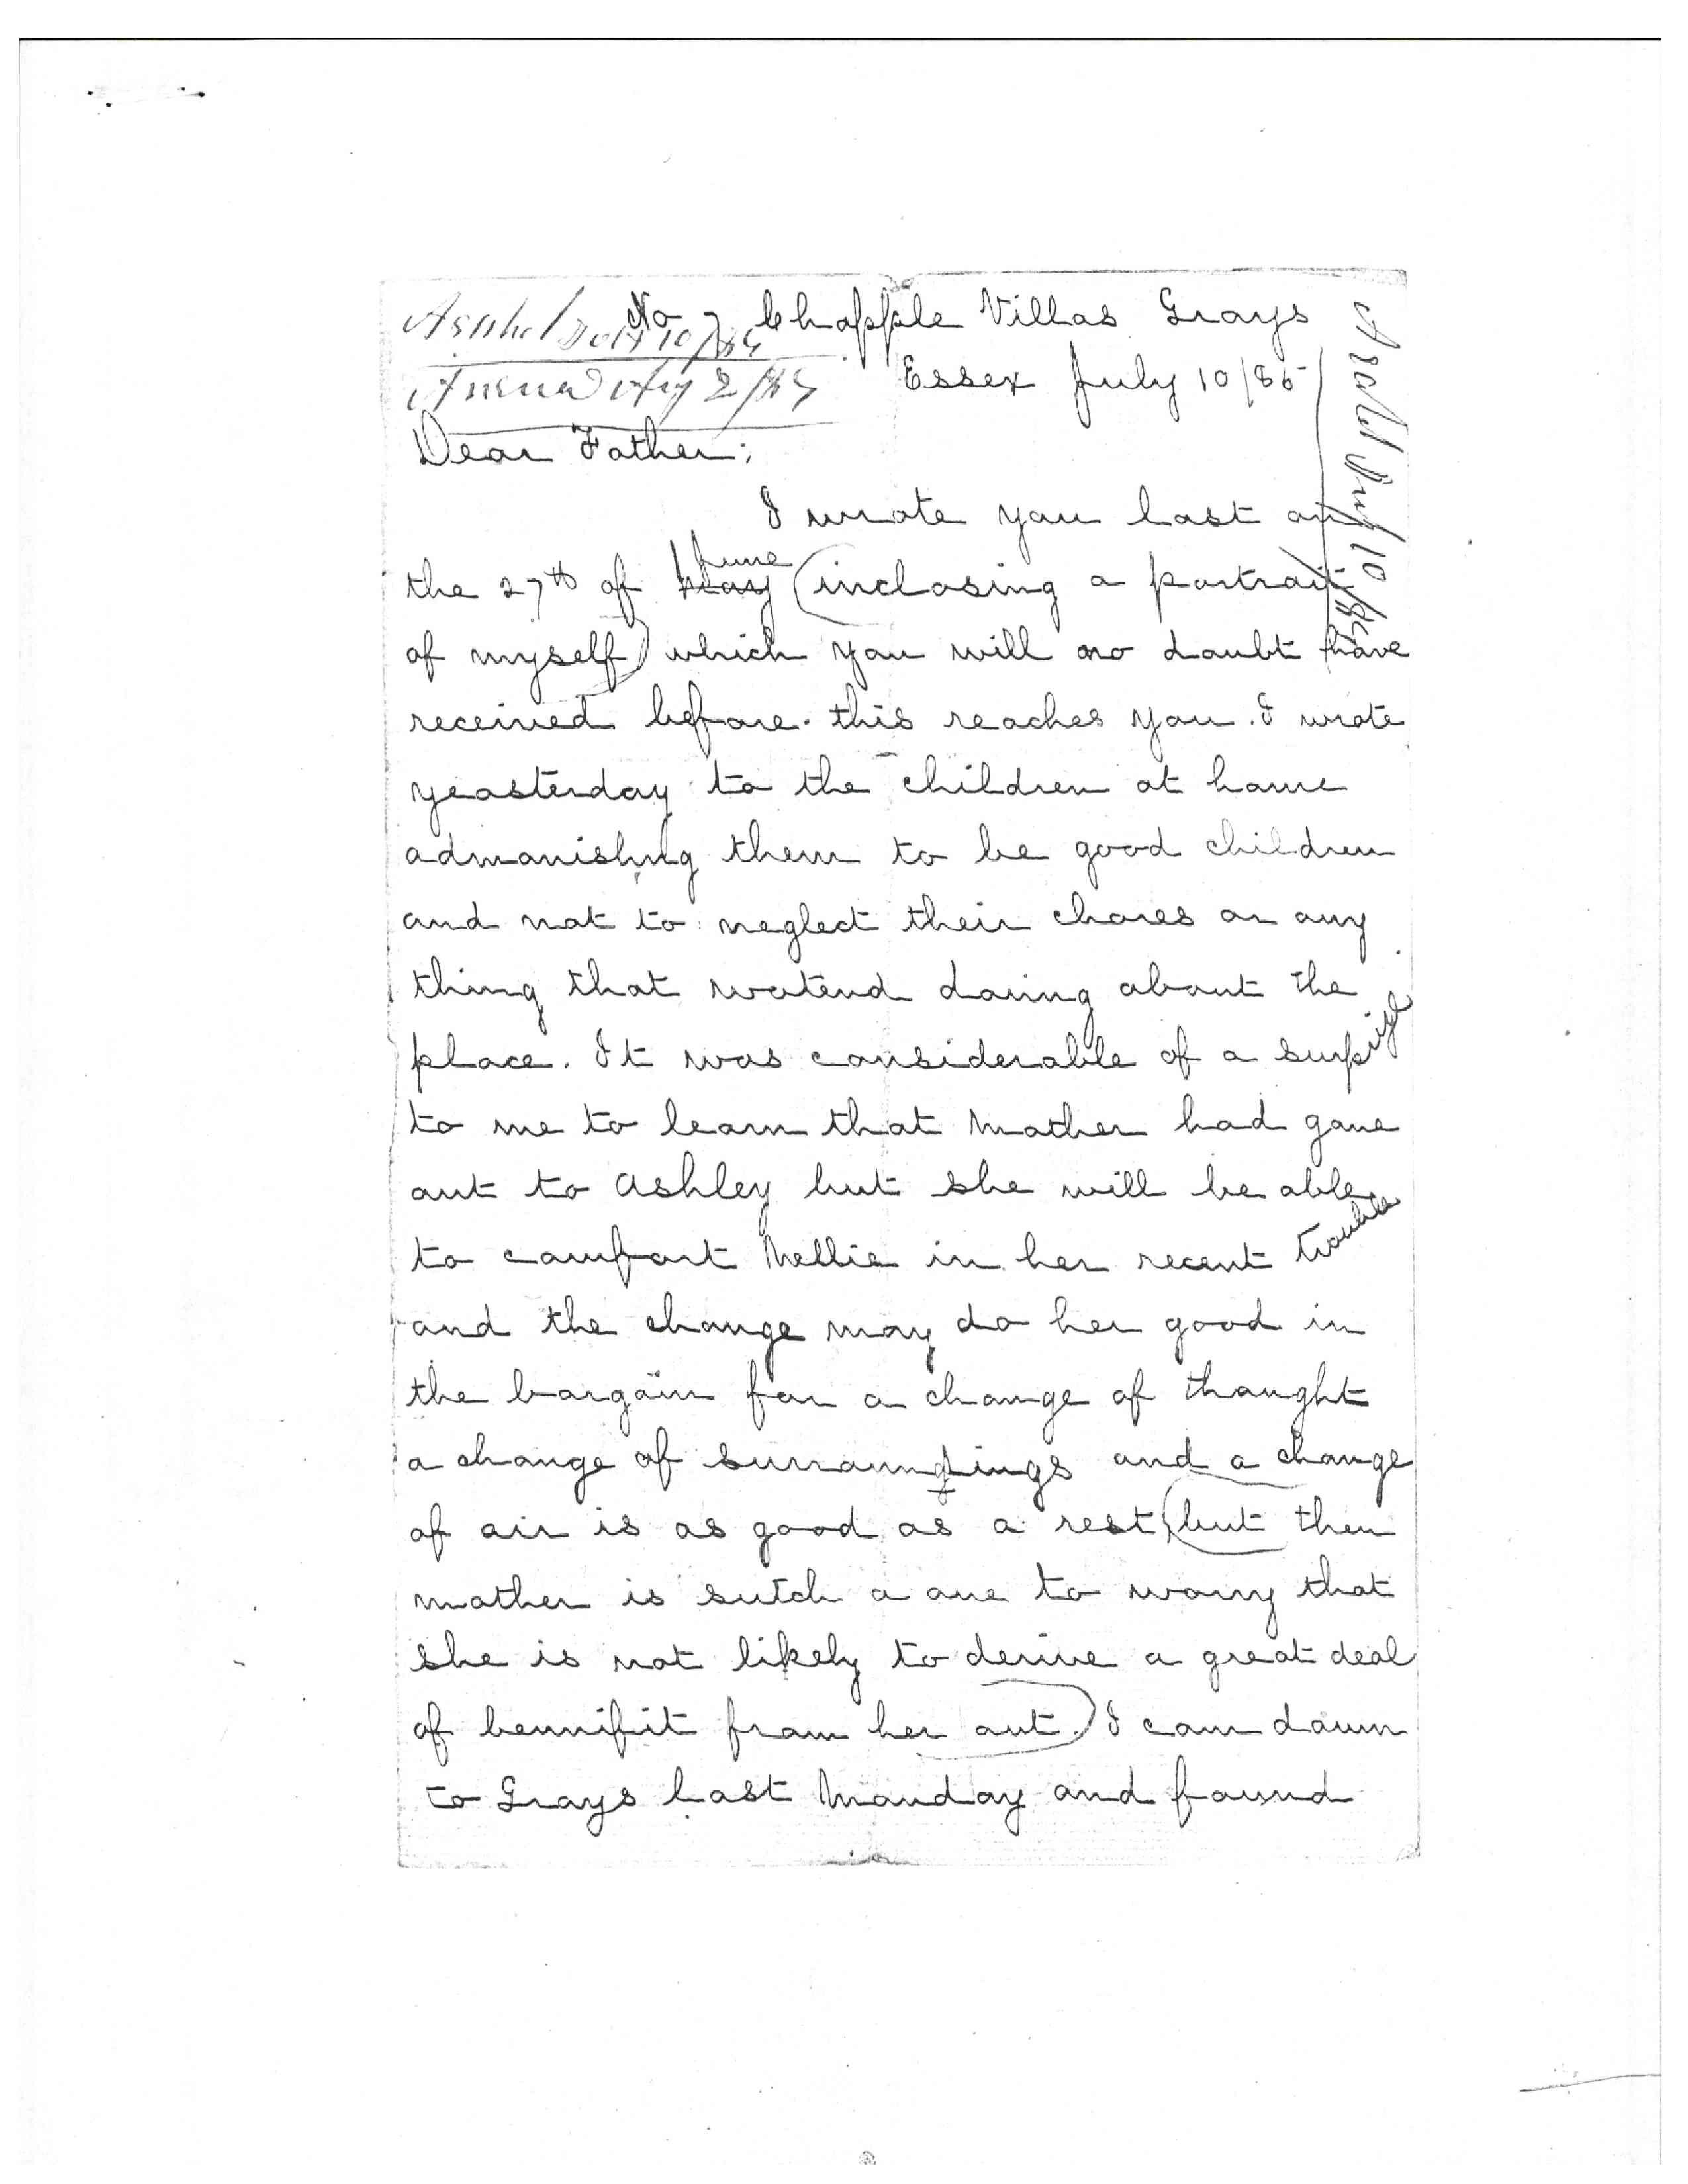 No 7 Chapple Villas Grays
Essex July 10/85
Dear Father;
I wrote you last on
the 27th of May June (inclosing a portrait
of myself) which you will no doubt have
received before this reaches you. I wrote
yeasterday to the children at home
admonishing them to be good children
and not to neglect their chores or any
thing that watend doing about the
place. It was considerable of a surprise
to me to learn that Mother had gone
out to Ashley but she will be able
to comfort Nellie in her recent trouble
and the change may do her good in
the bargain for a change of thought
a change of surroundings and a change
of air is as good as a rest, (but then
mother is sutch a one to worry that
she is not likely to derive a great deal
of bennifit from her out.) I cam down
to Grays last Monday and found